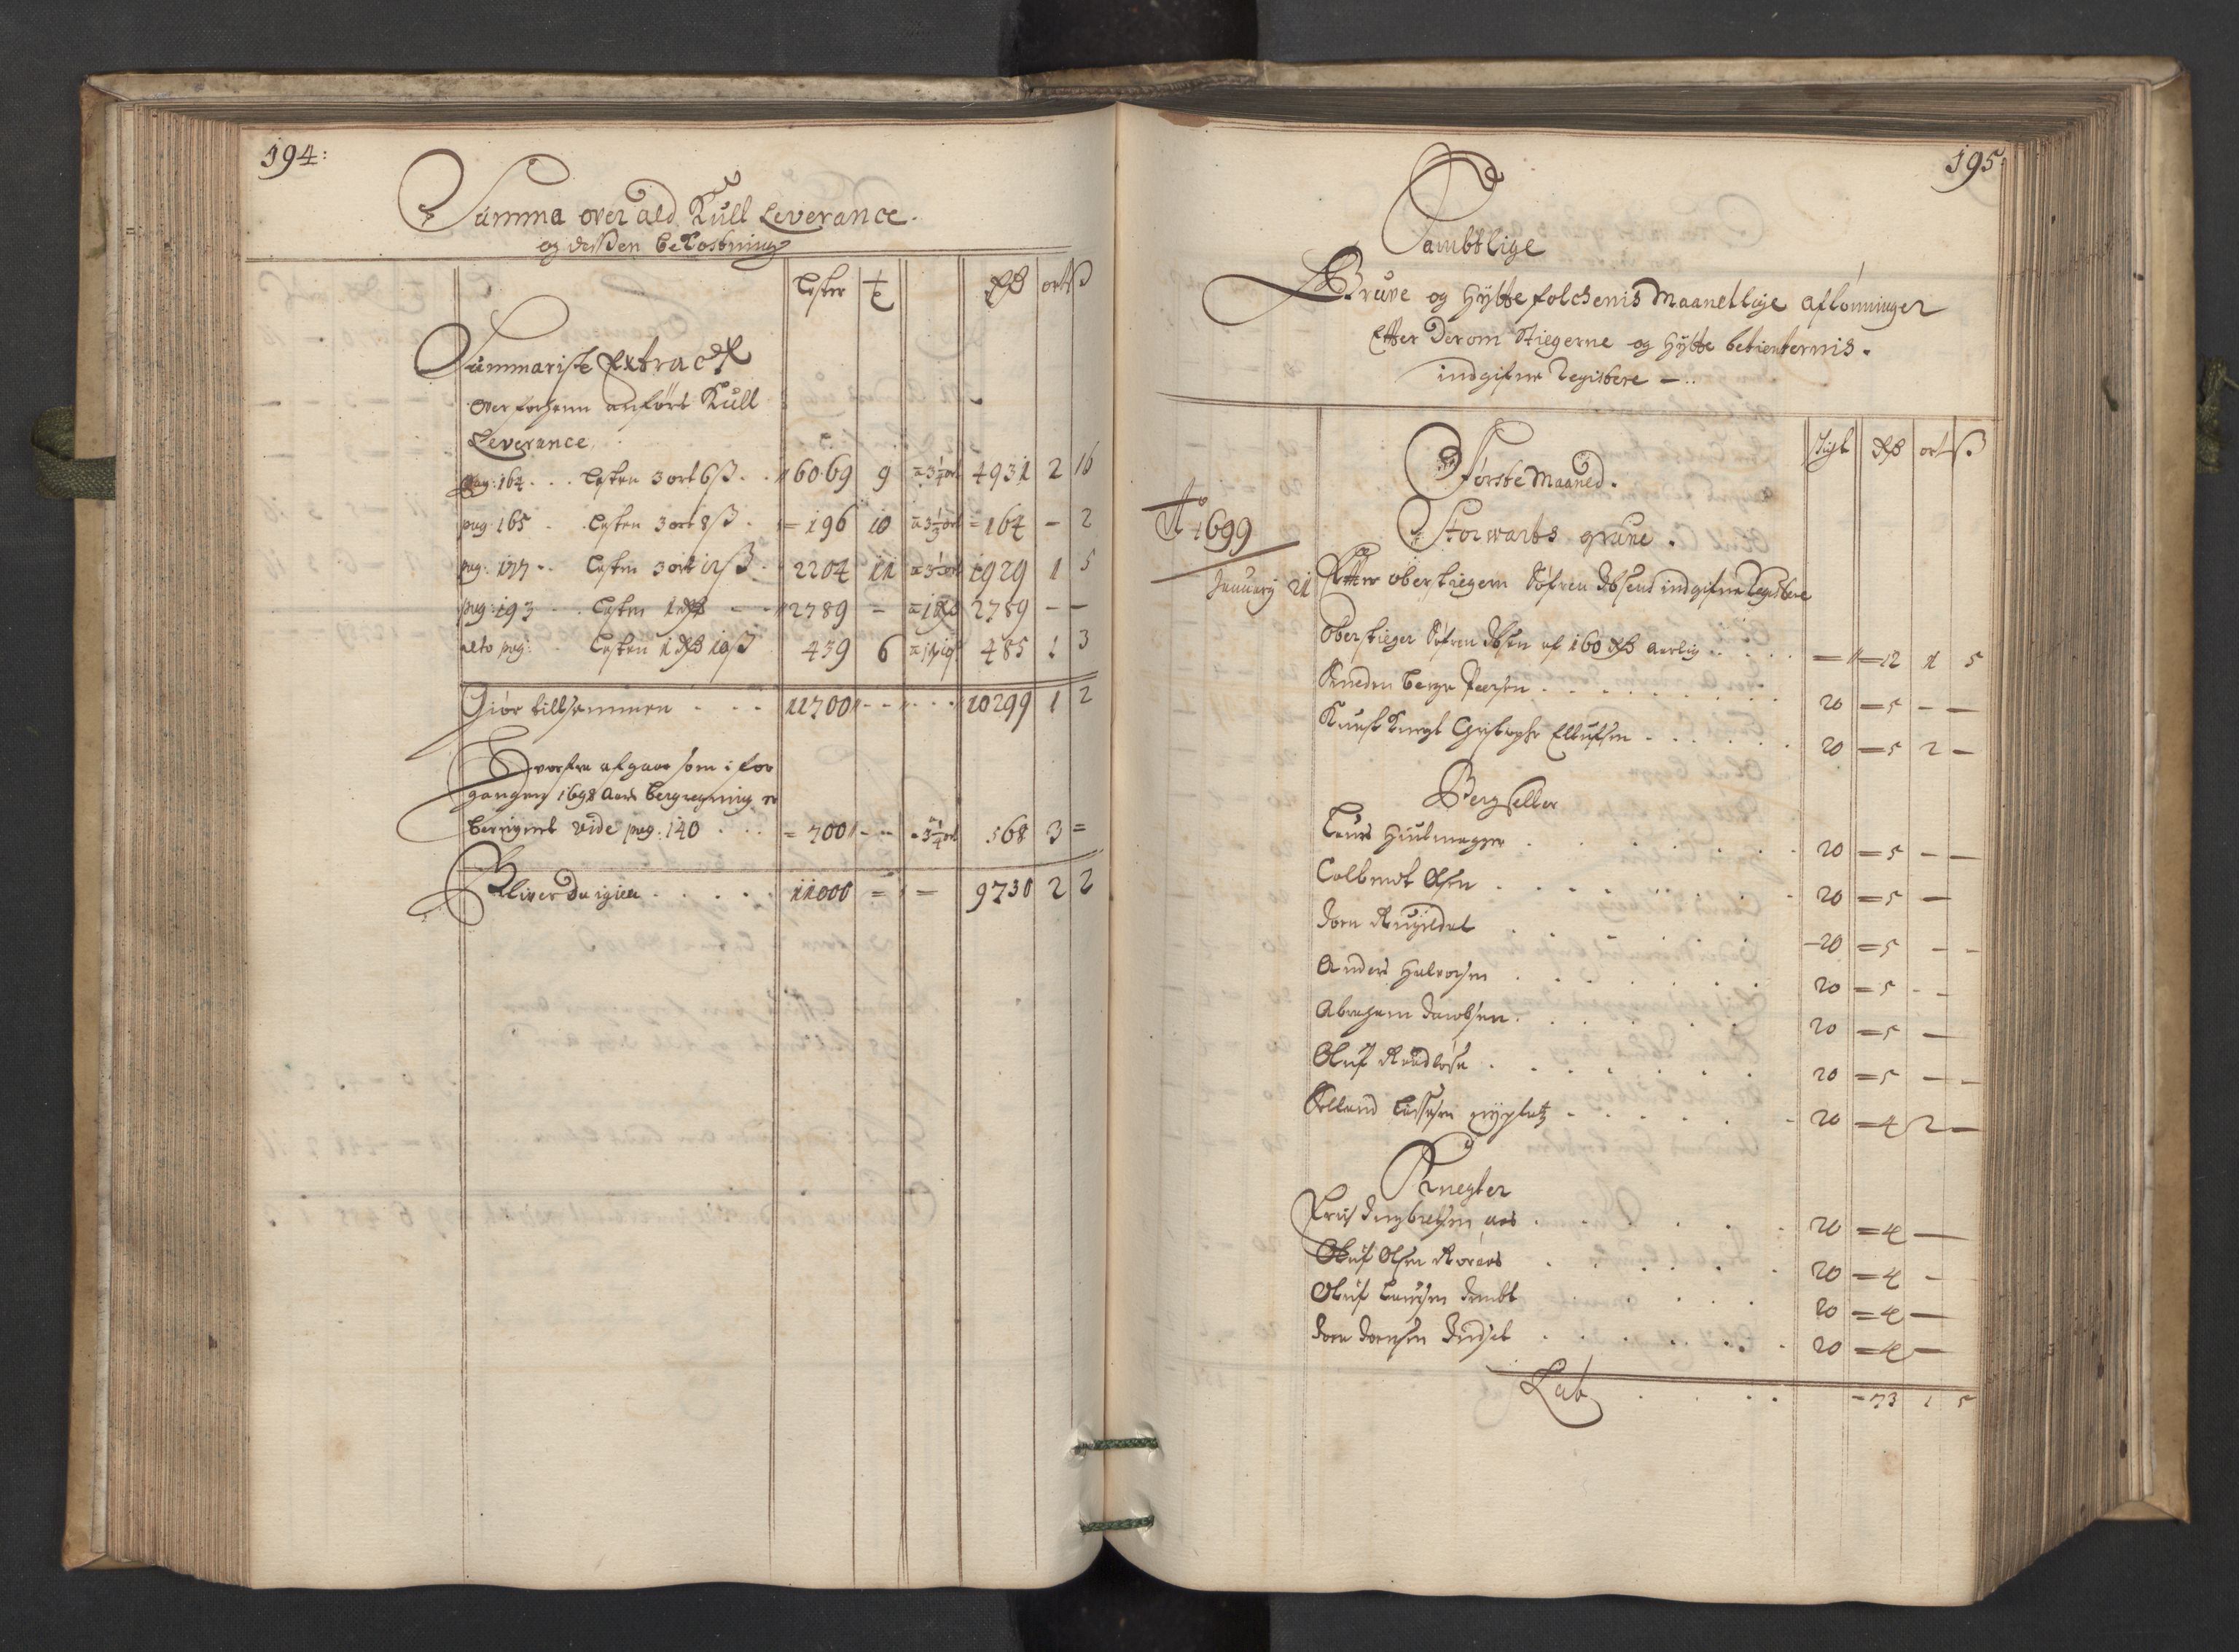 194:
Summa over ald Kull Leverance.
og desßen bekostning
Lester t rdr ort ß
Summariske Extract
over forhenn anførte Kull
Leverance
pag: 164 . . . Lesten 3 ort 6 ß . . 6069 9 a 3¼ ort 4931 2 16
pag: 165 . . Lesten 3 ort 8 ß . = 196 10 a 3⅓ ort = 164 – 2
pag: 177 . . Lesten 3 ort 12 ß . 2204 11 a 3½ ort 1929 1 5
pag: 193 . . Lesten 1 rdr – – 2789 = a 1 rdr 2789 – –
dito pag: . Lesten 1 rdr 10 ß 439 6 485 1 3
Giør tillsammen . . . 11700 . . . . . 10299 1 2
Hvorfra afgaar som i for
gangen 1698 Aars bergregning er
beregnet vide pag: 140 . . . = 700 – – a 3¼ ort 568 3 =
Bliver da igien . . . . . 11000 = – 9730 2 2
195
Sambtlige
Gruve og Hÿtte folchenis Maanetlige Aflønninger
Efter derom Stiegerne og Hÿtte betienternis.
indgifne Registere – . .
Første Maaned.
Skigt rdr ort ß
Ao 1699
Storwarts grube.
January 21 Efter oberstiegern Søfren Ibsens indgifne Registere
Oberstieger Søfren Ibsen af 160 rdr Aarlig . . . . – = 12 1 5
Smeden Berge Peersen . . . . . . . 20 = 5 – –
Kunst Knegt Christopher Ellufsen . . . . . . 20 = 5 2 –
Bergseller
Laurs Hiulmager . . . . . . 20 = 5 – –
Colbendt Olsen . . . . . . . 20 = 5 –
Joen Rugeldal . . . . . . – 20 = 5 – –
Anders Halvorsen . . . . . . 20 = 5 – –
Abraham Jacobsen . . . . . . 20 = 5 –
Oluf Rundløse . . . . . . . 20 = 5 – –
Erland Lassesen nÿplatz . . . . . . 20 = 4 2 –
Knegter
Engebretsen aas . . . . . . 20 = 4 –
Oluf Olsen Røraas . . . . . . 20 = 4 –
Oluf Laursen . . . . . 20 = 4 –
Joen Joensen . . . . . . 20 = 4 –
Lat . . . . – 73 1 5